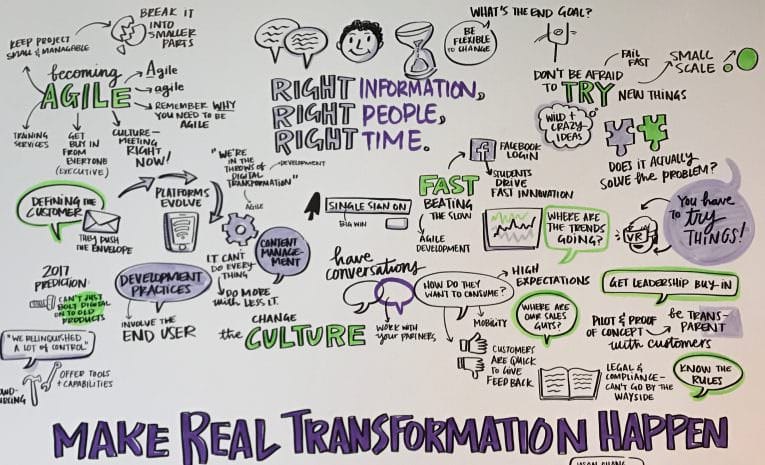 BREAK IT
INTO
SMALLER
PARTS
KEEP PROJECT
SMALL & MANAGABLE
becoming
AGILE
Agile
agile
REMEMBER WHY
YOU NEED TO BE
AGILE
TRAINING
SERVICES
GET
BUY IN
FROM
EVERYONE
(EXECUTIVE)
CULTURE-
MEETING
RIGHT
NOW!
WHAT'S THE END GOAL?
BE
FLEXIBLE
TO CHANGE
RIGHT INFORMATION,
RIGHT PEOPLE,
RIGHT TIME.
DON'T BE AFRAID
TO TRY NEW THINGS
FAIL
FAST
SMALL
SCALE
WILD +
CRAZY
IDEAS
DOES IT ACTUALLY
SOLVE the PROBLEM?
DEFINING THE
CUSTOMER
THEY PUSH
THE ENVELOPE
PLATFORMS
EVOLVE
"WE'RE
IN THE
THROWS OF
DIGITAL
TRANSFORMATION"
DEVELOPMENT
AGILE
f
FACEBOOK
LOGIN
STUDENTS
DRIVE
FAST INNOVATION
FAST
BEATING
THE SLOW
AGILE
DEVELOPMENT
SINGLE SIGN ON
BIG WIN
WHERE ARE
THE TRENDS
GOING?
VR
You have
to try
THINGS!
2017
PREDICTION
CAN'T JUST
BOLT DIGITAL
ON TO OLD
PRODUCTS
DEVELOPMENT
PRACTICES
INVOLVE THE
END USER
IT CAN'T
DO EVERY-
THING
DO MORE
with LESS I.T.
CONTENT
MANAGE-
MENT
CHANGE
the CULTURE
have
conversations
WORK WITH
your PARTNERS
HOW DO THEY
WANT TO CONSUME?
HIGH
EXPECTATIONS
MOBILITY
CUSTOMERS
ARE QUICK
TO GIVE
FEEDBACK
WHERE ARE
OUR SALES
GUYS?
GET LEADERSHIP BUY-IN
PILOT & PROOF
OF CONCEPT
be TRANS-
PARENT
with customers
LEGAL &
COMPLIANCE-
CAN'T GO BY THE
WAYSIDE
KNOW THE
RULES
"WE RELINQUISHED
A LOT OF CONTROL"
OFFER TOOLS
+ CAPABILITIES
MAKE REAL TRANSFORMATION HAPPEN